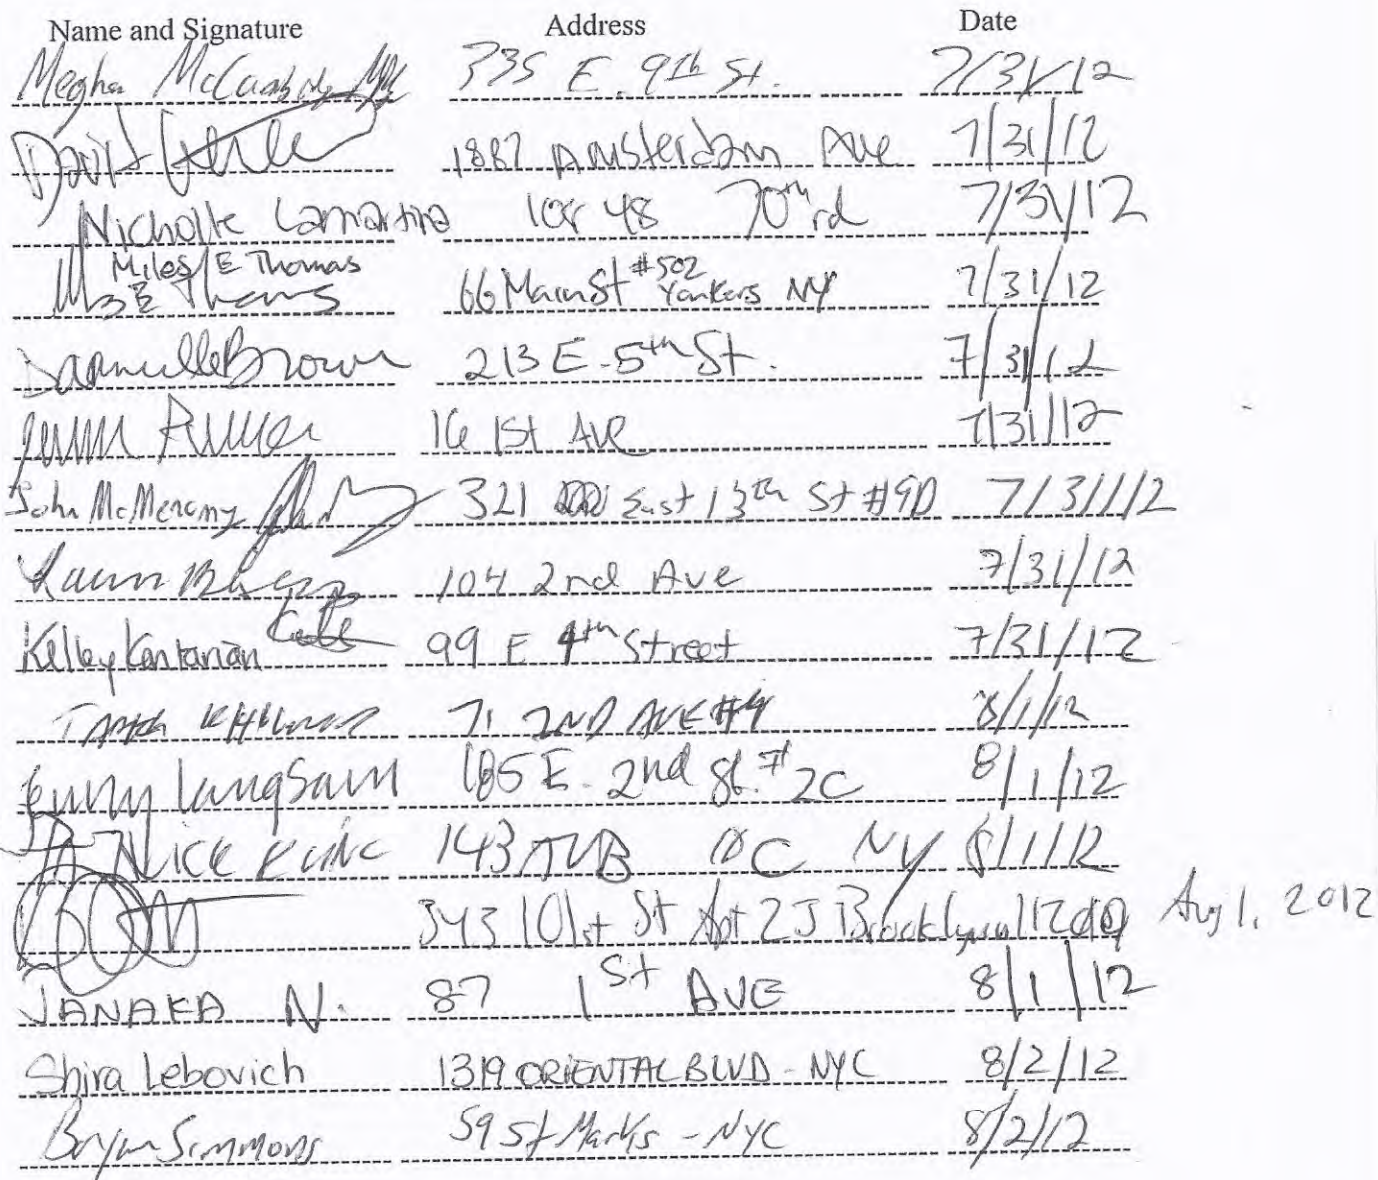 Name and Signature Address Date
Megha 335 E. 9th St. 7/31/12
David 1887 Amsterdam Ave 7/31/12
Nicholle Lamartina 108 48 70th rd 7/31/12
Miles E Thomas 66 Main St #502 Yonkers NY 7/31/12
Brown 213 E. 5th St. 7/31/12
16 1st Ave 7/31/12
John McMenamy 321 East 13th St #9D 7/31/12
104 2nd Ave 7/31/12
Kelley Kantarian 99 E 4th Street 7/31/12
71 2ND AVE #4 8/1/12
Langsam 185 E. 2nd St. #2C 8/1/12
Nick 143 AVB NY 8/1/12
343 101st St Apt 2J Brooklyn Aug 1, 2012
JANAKA N. 87 1st AVE 8/1/12
Shira Lebovich 1319 ORIENTAL BLVD - NYC 8/2/12
Bryan Simmons 59 St Marks - NYC 8/2/12